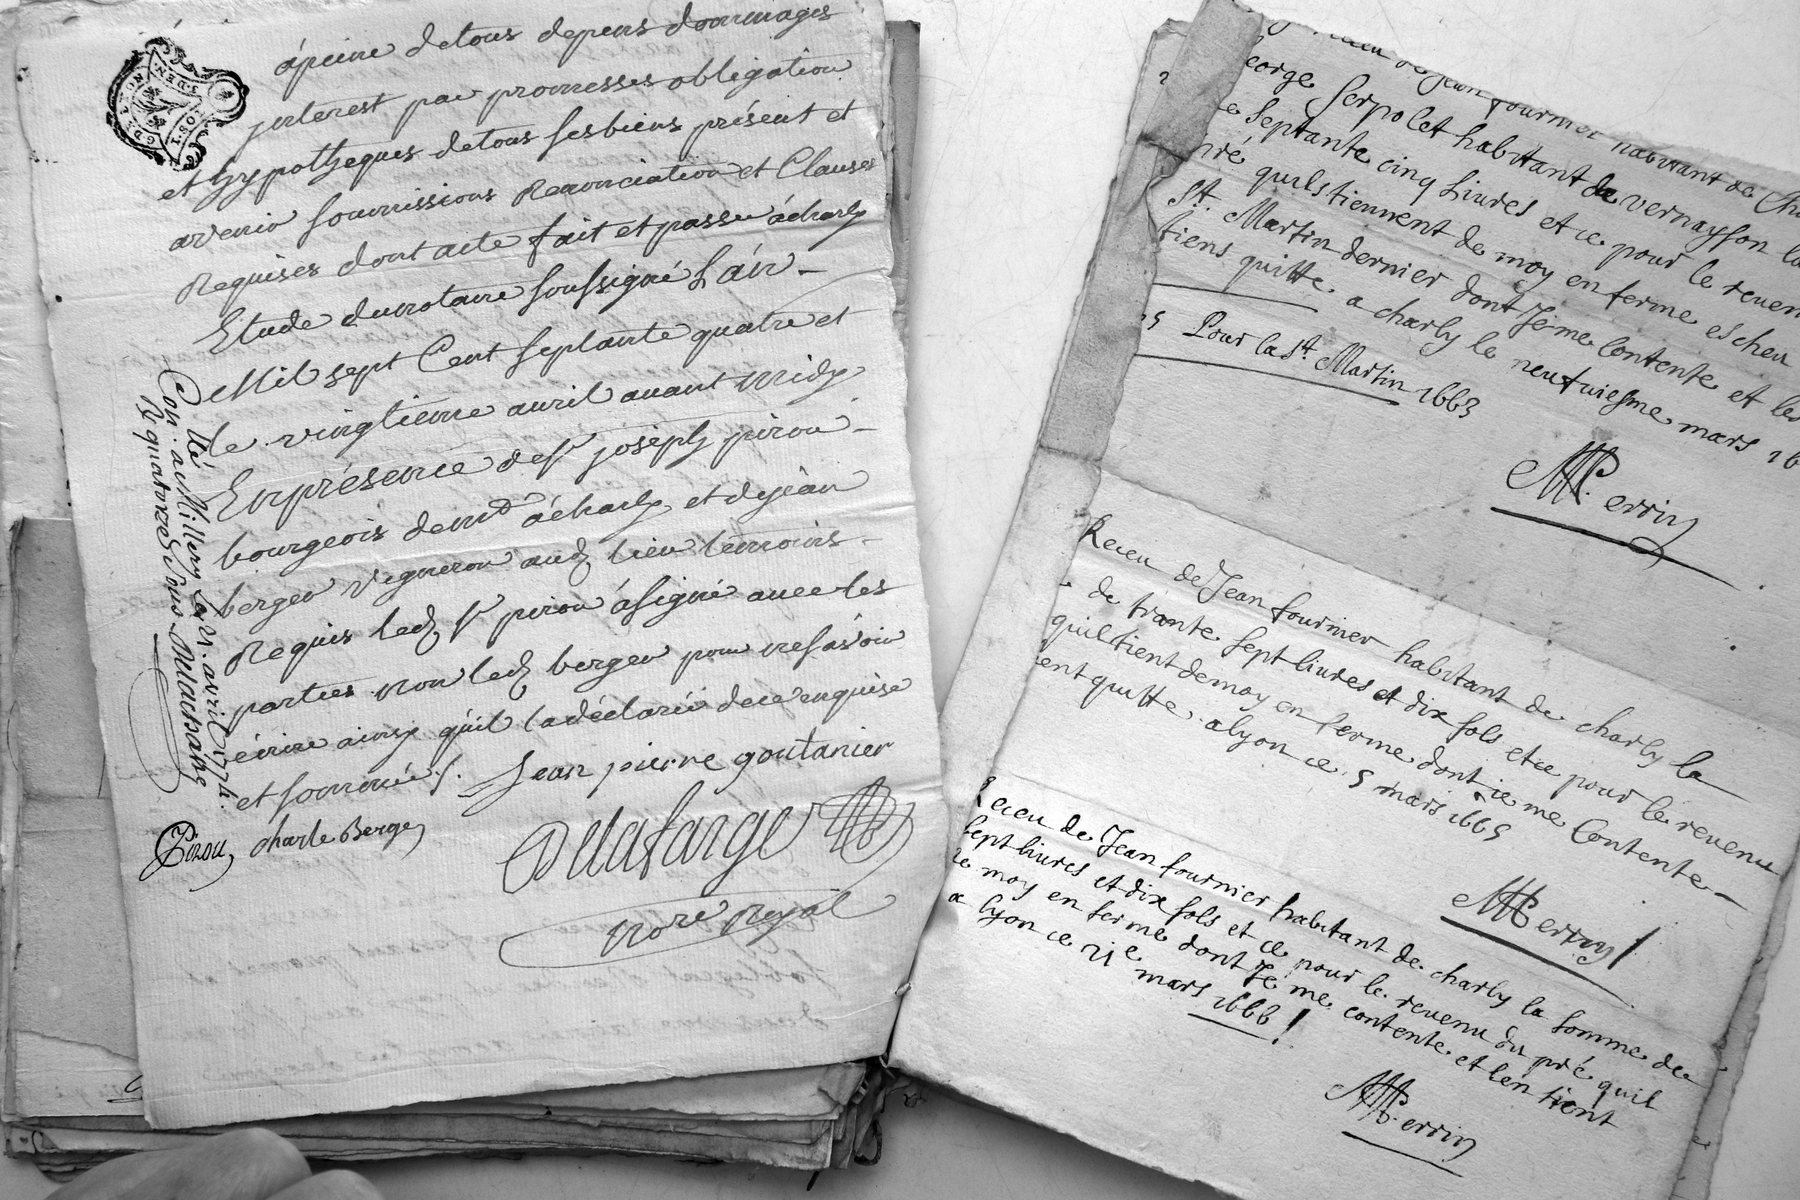 àpeine detous depens dommages
jnterest par promesses obligation
et hypotheques detous ses biens présent et
avenir soumissions Renonciation et Clauses
Requises dont acte fait et passé àcharly
Etude dunotaire soussigné L'an
Mil sept Cent septante quatre et
le vingtieme avril avant midy
En présence de sr joseph pirou
bourgeois de àcharly et dejean
berger vigneron aud lieu témoins
Requis led sr pirou àsigné avec les
parties non led berger pour ne sçavoir
écrire ainsy qu'il la déclaré dece enquise
et sommé ./. Jean pierre goutanier
Pirou charle Berge
Delafarge
nore Royal
Conllé a Millery le avril 1774.
R quatorze sous
GENER
LYON
Receu de Jean fournier habitant de Cha
eorge Serpolet habitant de vernayson la
e Septante cinq Livres et ce pour le reven
pré quils tiennent de moy en ferme escheu
St Martin dernier dont Je me Contente et les
tiens quitte a charly le neufviesme mars 16
Pour la St Martin 1663
MPerrin
Receu de Jean fournier habitant de charly la
de trante sept livres et dix sols et ce pour le revenu
quil tient de moy en ferme dont ie me Contente
ent quitte a lyon ce 5 mars 1665
MPerrin
Receu de Jean fournier habitant de charly la somme de
sept livres et dix sols et ce pour le revenu du pré quil
de moy en ferme dont Je me contente et len tient
a lyon ce mars 1666
MPerrin